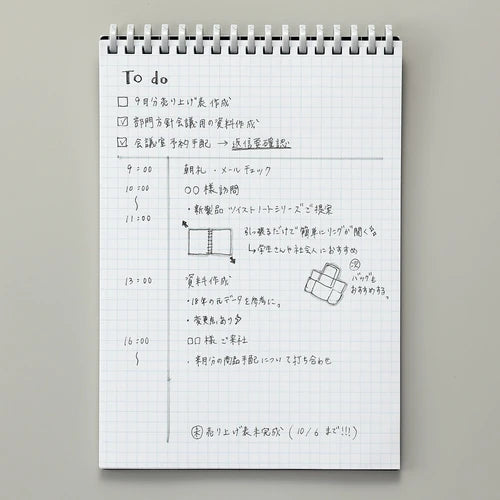 To do
9月分売り上げ表 作成
部門方針会議用の資料作成
会議室 予約手配 → 返信要確認
9:00 朝礼・メールチェック
10:00 〇〇様訪問
〜 ・新製品 ツイストノートシリーズご提案
11:00
引っ張るだけで簡単にリングが開く
↳学生さんや社会人におすすめ
13:00 資料作成
バッグも
おすすめする。
・18年の元データを参考に。
・変更点あり
16:00 □□様 ご来社
〜 ・来月分の商品手配について打ち合わせ
売り上げ表未完成 (10/6 まで!!!)